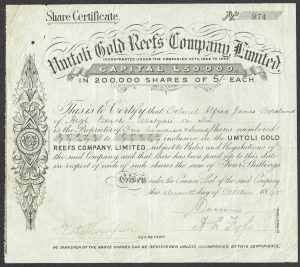 Share Certificate. No. 974
Umtoli Gold Reefs Company, Limited
INCORPORATED UNDER THE COMPANIES' ACTS, 1862 TO 1890.
CAPITAL £50,000,
IN 200,000 SHARES OF 5/- EACH.
This is to Certify that Colonel James Copeland
of
is the Proprietor of One hundred Shares numbered
inclusive in the UMTOLI GOLD
REEFS COMPANY, LIMITED, subject to Rules and Regulations of
the said Company and that there has been paid up to this date
in respect of each of such shares the sum of Four Shillings
Given under the Common Seal of the said Company
this eleventh day of October 189
DIRECTORS.
SECRETARY
NO TRANSFER OF THE ABOVE SHARES CAN BE REGISTERED UNLESS ACCOMPANIED BY THIS CERTIFICATE.